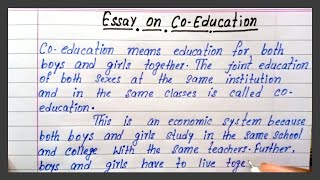 Essay on Co-Education
Co-education means education for both
boys and girls together. The joint education
of both sexes at the same institution
and in the same classes is called co-
education.
This is an economic system because
both boys and girls study in the same school
and college with the same teachers. Further,
boys and girls have to live toge